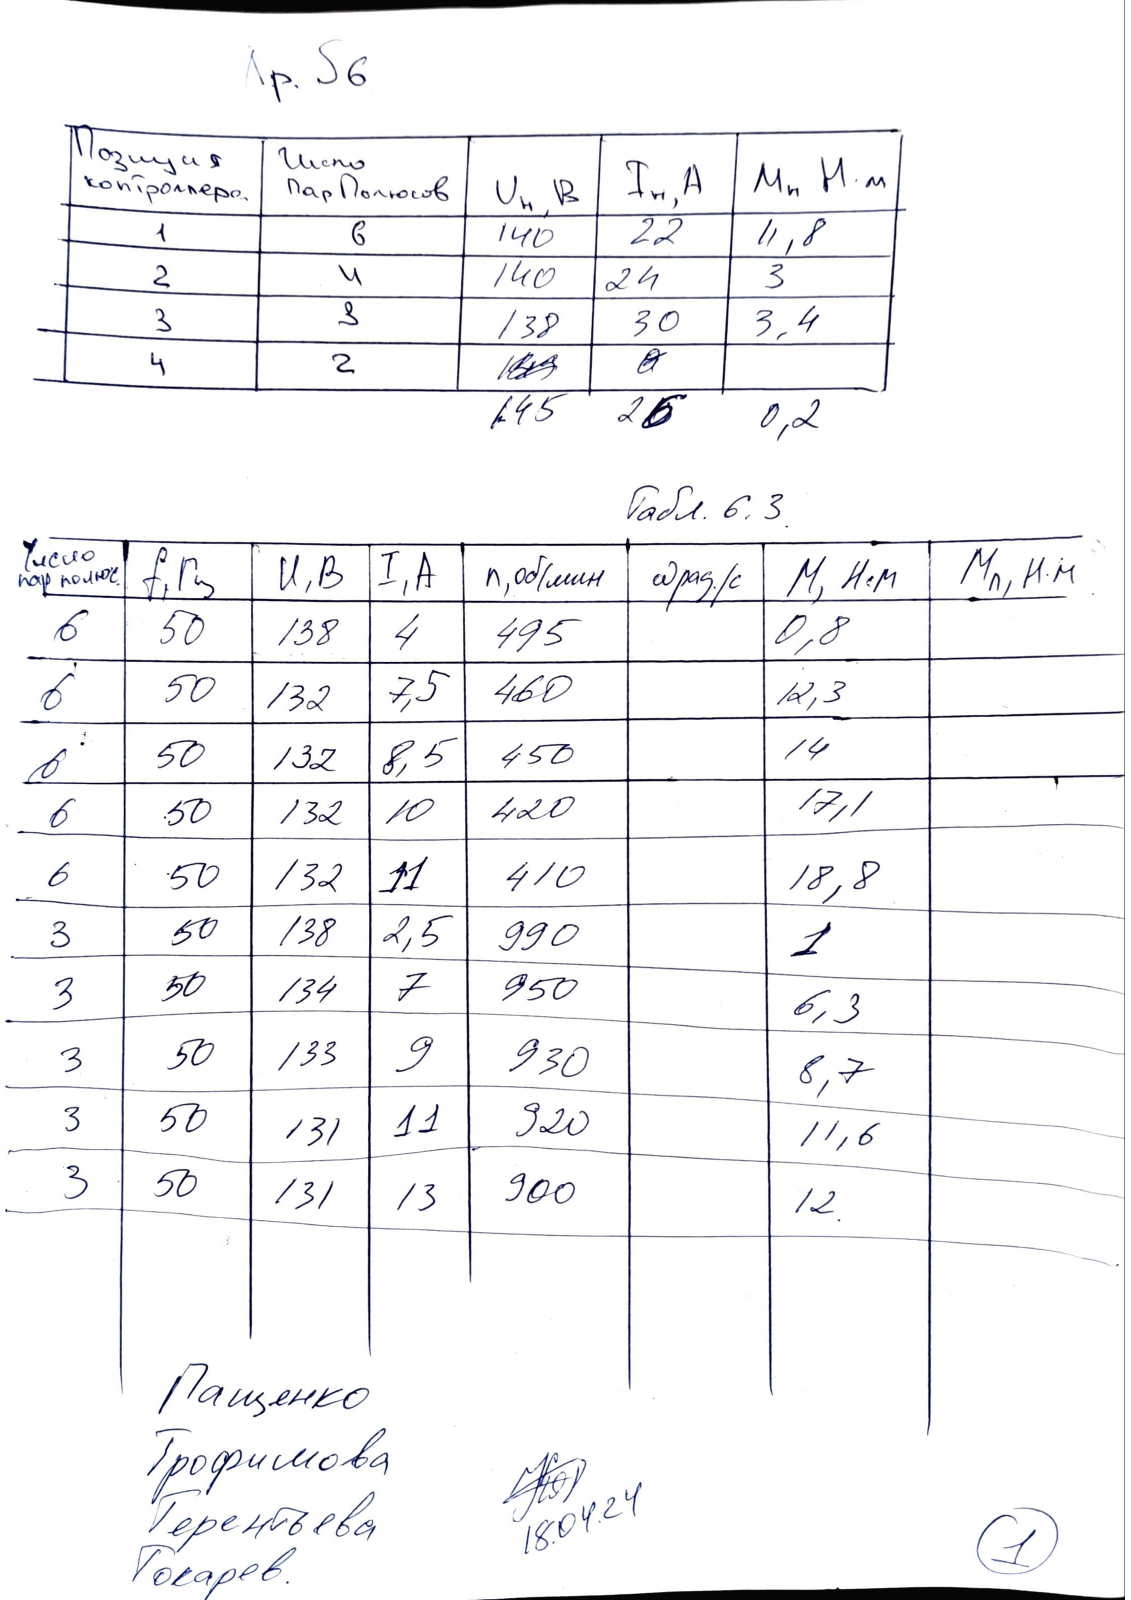 Лр. №6
Позиция контроллера. Число пар Полюсов Uн, В Iн, А Мп Н·м
1 6 140 22 11,8
2 4 140 24 3
3 3 138 30 3,4
4 2
145 26 0,2
Табл. 6.3.
Число пар полюс. f, Гц U, В I, А n, об/мин ω рад/с М, Н·м Мп, Н·м
6 50 138 4 495 0,8
6 50 132 7,5 460 12,3
6 50 132 8,5 450 14
6 50 132 10 420 17,1
6 50 132 11 410 18,8
3 50 138 2,5 990 1
3 50 134 7 950 6,3
3 50 133 9 930 8,7
3 50 131 11 920 11,6
3 50 131 13 900 12.
Пащенко
Трофимова
Терентьева
18.04.24
Токарев.
1